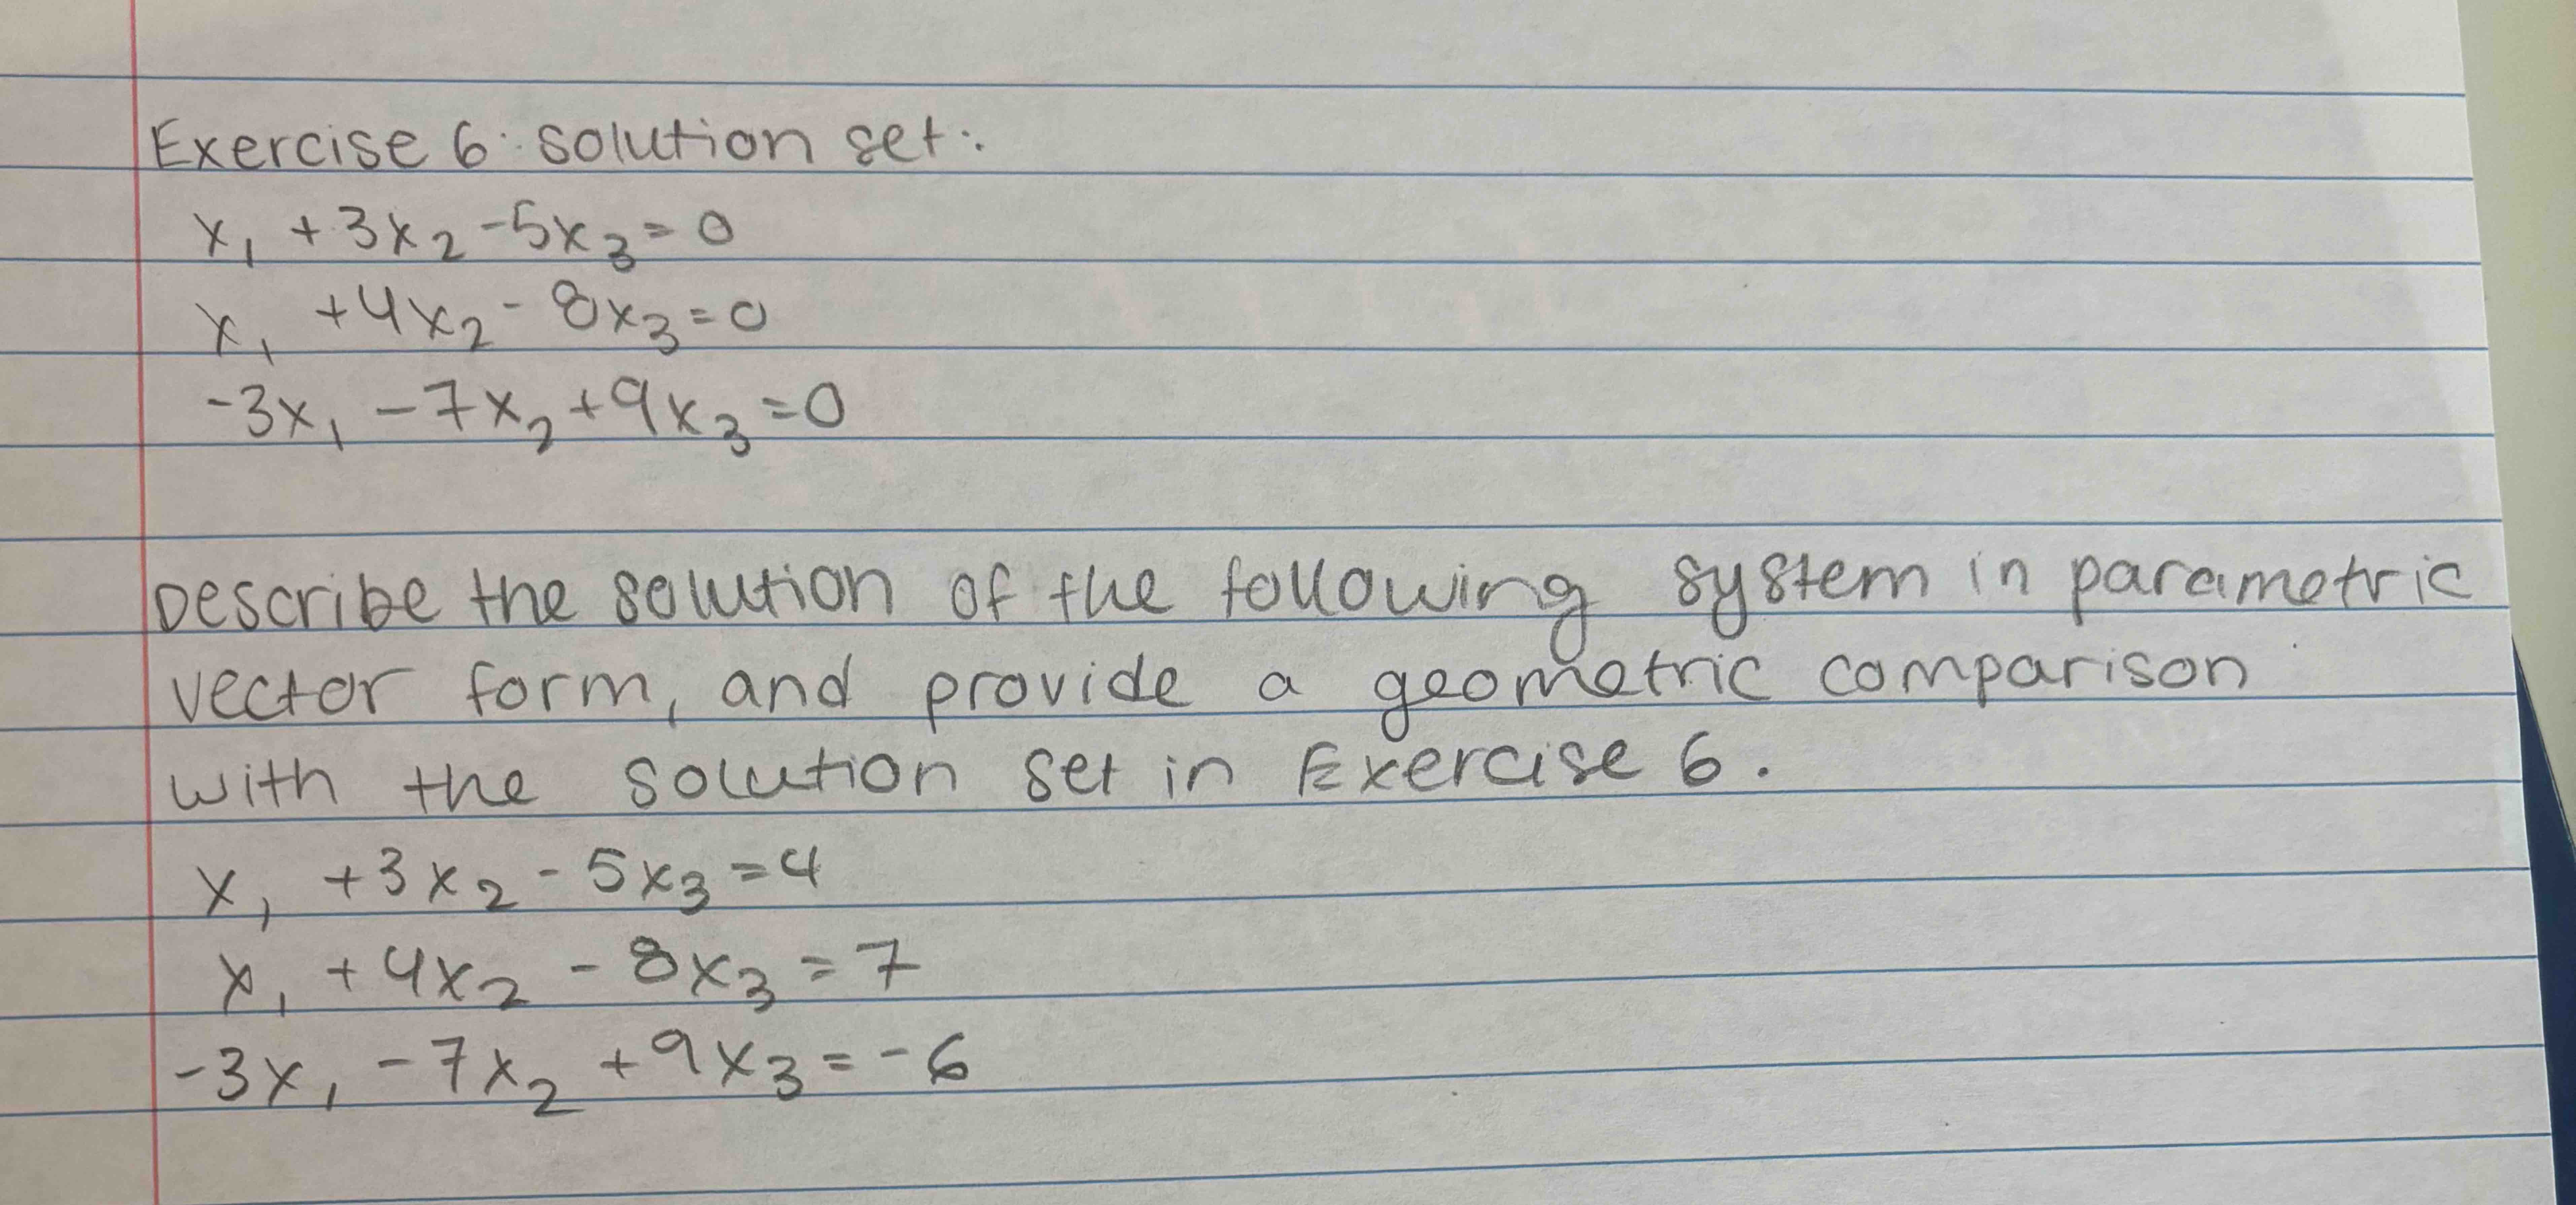 Exercise 6: solution set:
x₁ + 3x₂ - 5x₃ = 0
x₁ + 4x₂ - 8x₃ = 0
-3x₁ - 7x₂ + 9x₃ = 0
Describe the solution of the following system in parametric
vector form, and provide a geometric comparison
with the solution set in Exercise 6.
x₁ + 3x₂ - 5x₃ = 4
x₁ + 4x₂ - 8x₃ = 7
-3x₁ - 7x₂ + 9x₃ = -6